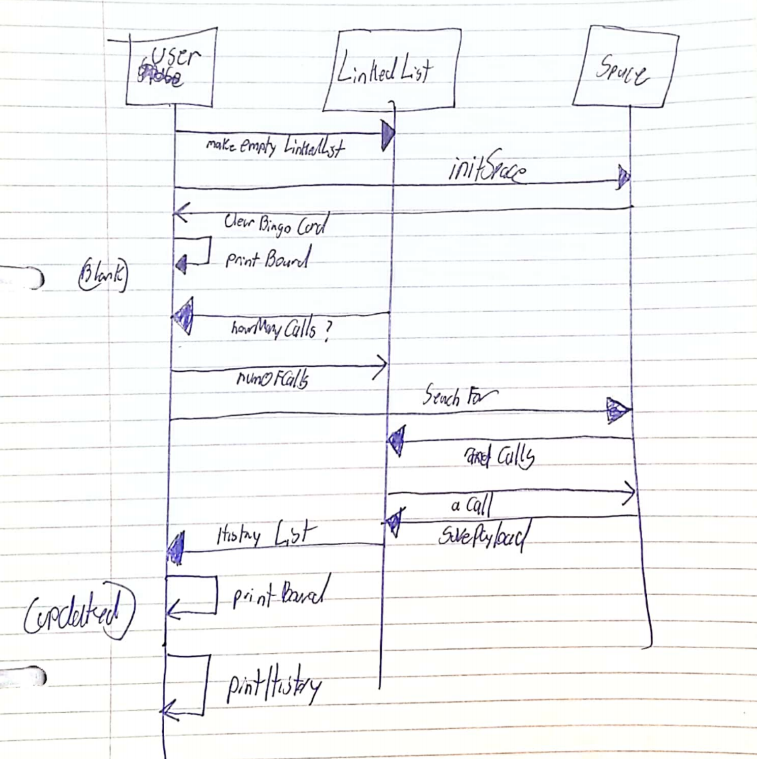 User
LinkedList
Space
make empty LinkedList
initSpace
Clear Bingo Card
print Board
(Blank)
howMany Calls ?
numOfCalls
Search For
Calls
a call
savePayload
History List
print Board
(updated)
printHistory